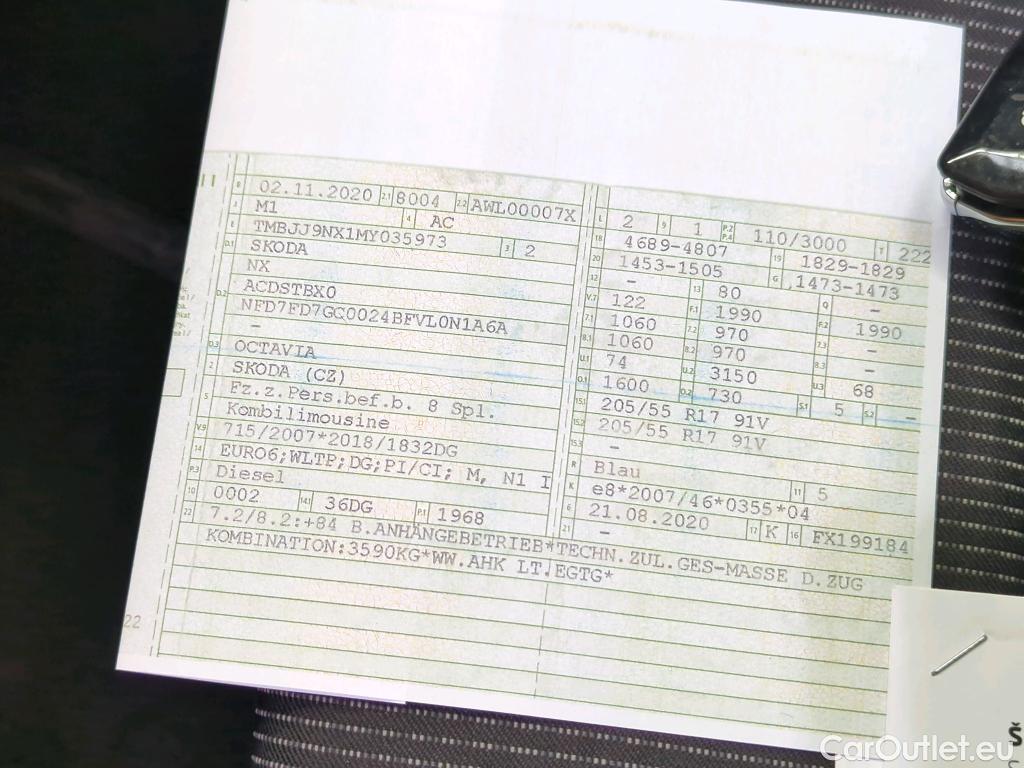 B 02.11.2020 2.1 8004 2.2 AWL00007X
J M1 4 AC
E TMBJJ9NX1MY035973 3 2
D.1 SKODA
NX
D.2 ACDSTBX0
NFD7FD7GC0024BFVL0N1A6A
–
D.3 OCTAVIA
2 SKODA (CZ)
5 Fz.z.Pers.bef.b. 8 Spl.
Kombilimousine
V.9 715/2007*2018/1832DG
14 EURO6;WLTP;DG;PI/CI; M, N1 I
P.3 Diesel
10 0002 14.1 36DG P.1 1968
L 2 9 1 P.2 P.4 110/3000 T 222
18 4689-4807 19 1829-1829
20 1453-1505 G 1473-1473
12 – 13 80 Q –
V.7 122 F.1 1990 F.2 1990
7.1 1060 7.2 970 7.3 –
8.1 1060 8.2 970 8.3 –
U.1 74 U.2 3150 U.3 68
O.1 1600 O.2 730 S.1 5 S.2 –
15.1 205/55 R17 91V
15.2 205/55 R17 91V
15.3 –
R Blau 11 5
K e8*2007/46*0355*04
6 21.08.2020 17 K 16 FX199184
21 –
22 7.2/8.2:+84 B.ANHÄNGEBETRIEB*TECHN.ZUL.GES-MASSE D.ZUG
KOMBINATION:3590KG*WW.AHK LT.EGTG*
22
Š
CarOutlet.eu